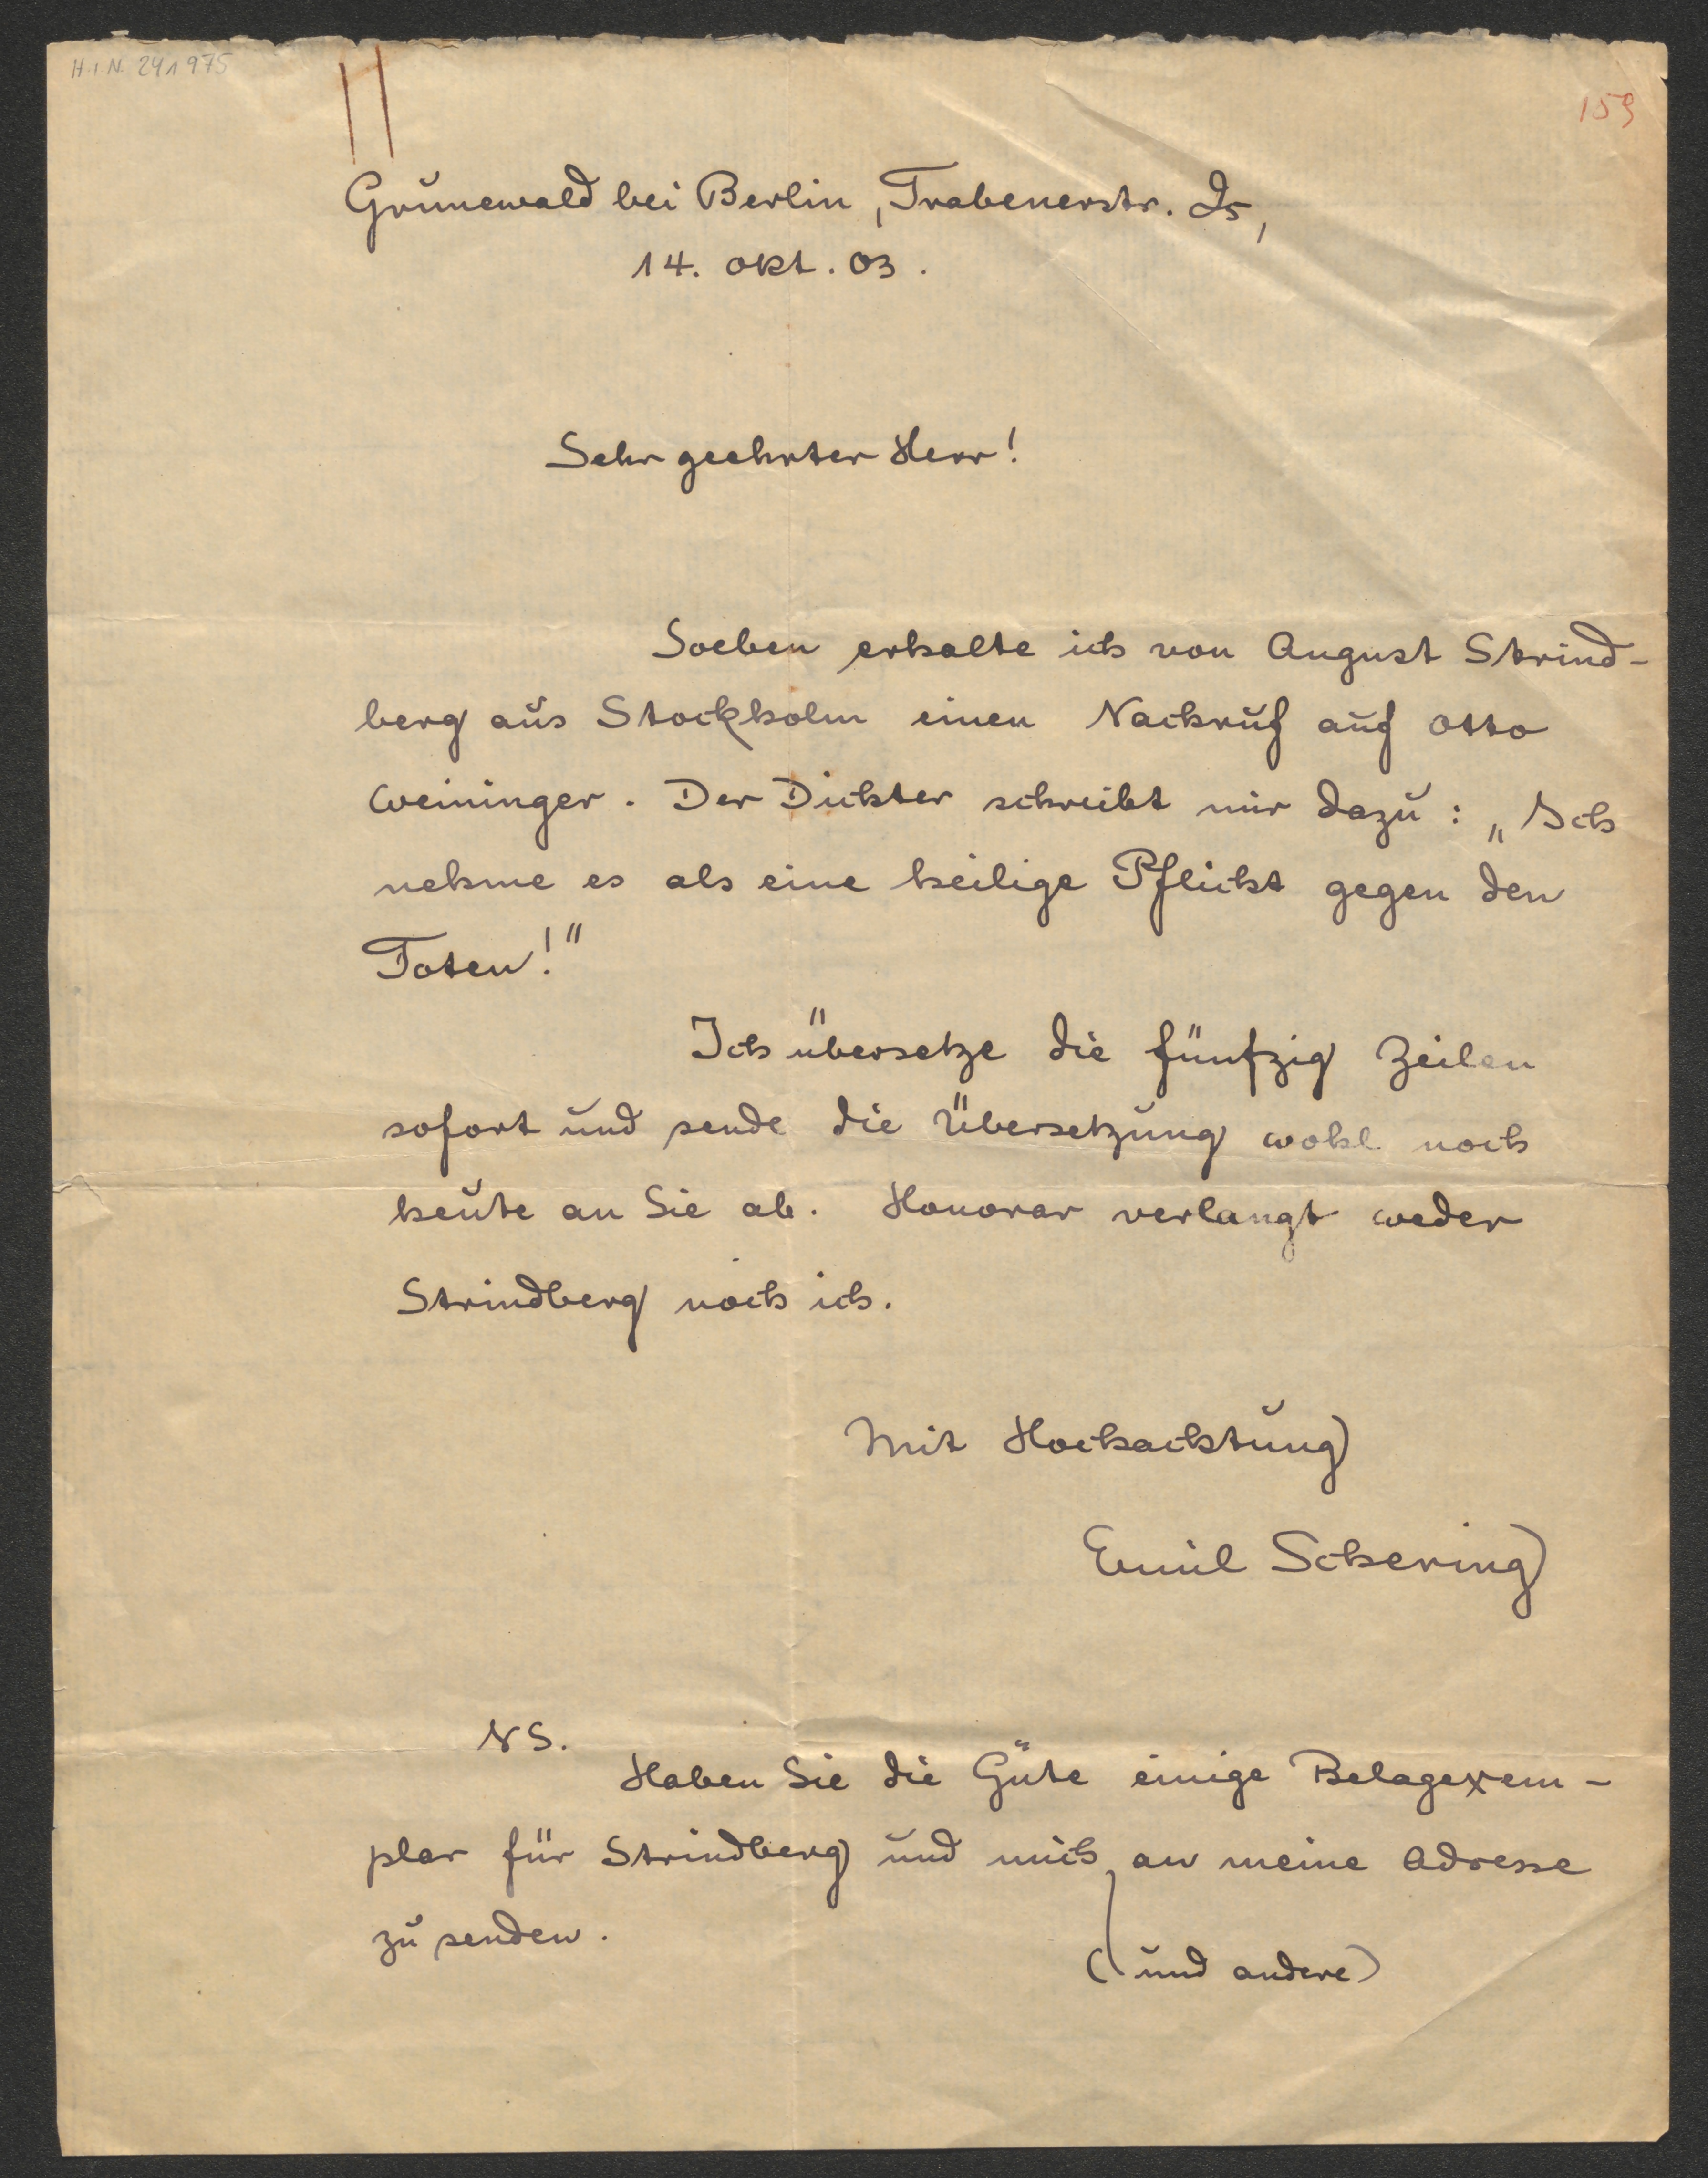 H.I.N. 241975
159
Grunewald bei Berlin, Trabenerstr. 25,
14. Okt. 03.
Sehr geehrter Herr!
Soeben erhalte ich von August Strind-
berg aus Stockholm einen Nachruf auf Otto
Weininger. Der Dichter schreibt mir dazu: „Ich
nehme es als eine heilige Pflicht gegen den
Toten!"
Ich übersetze die fünfzig Zeilen
sofort und sende die Übersetzung wohl noch
heute an Sie ab. Honorar verlangt weder
Strindberg noch ich.
Mit Hochachtung
Emil Schering
NS.
Haben Sie die Güte einige Belagexem-
plar für Strindberg und mich an meine Adresse
zu senden.
(und andere)